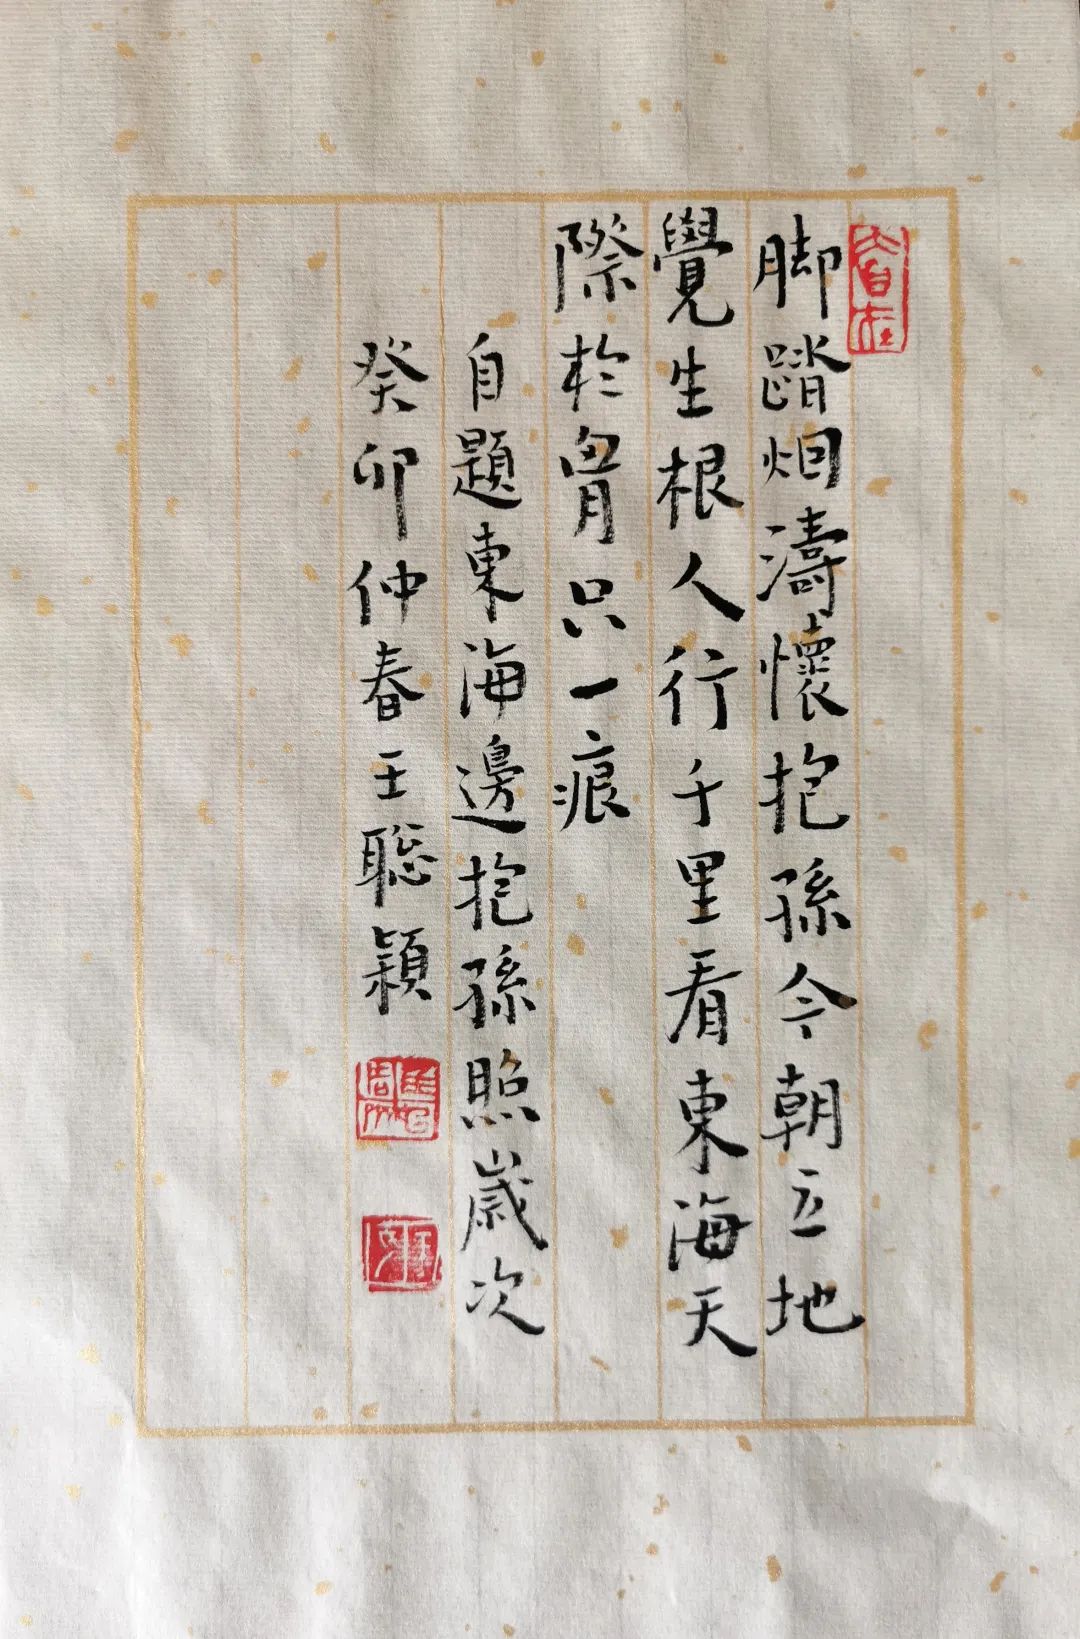 脚踏烟濤懷抱孫今朝立地
覺生根人行千里看東海天
際於胷只一痕
自題東海邊抱孫照歲次
癸卯仲春王聡穎